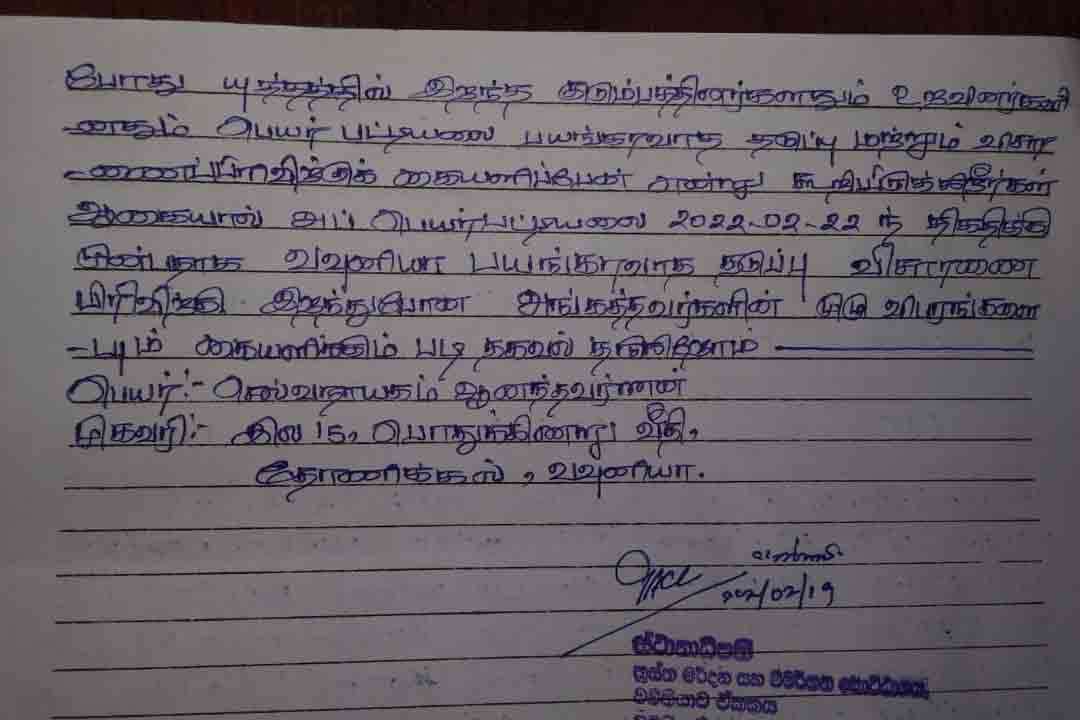 போது யுத்தத்தில் இறந்த குடும்பத்தினர்களதும் உறவினர்களி
-னதும் பெயர் பட்டியலை பயங்கரவாத தடுப்பு மற்றும் விசார
-ணைப்பிரிவிற்குக் கையளிப்பேன் என்று கூறியிருக்கிறீர்கள்
ஆகையால் அப் பெயர்பட்டியலை 2022-02-22 ந் திகதிக்கு
முன்பதாக வவுனியா பயங்கரவாத தடுப்பு விசாரணை
பிரிவிற்கு இறந்துபோன அங்கத்தவர்களின் முழு விபரங்களை
-யும் கையளிக்கும் படி தகவல் தருகிறோம்
பெயர்:- செல்வநாயகம் ஆனந்தவர்ணன்
முகவரி:- இல 15, பொதுக்கிணறு வீதி,
தோணிக்கல், வவுனியா.
2022/02/19
ස්ථානාධිපති
ත්‍රස්ත මර්දන සහ විමර්ශන කොට්ඨාසය,
වව්නියාව ඒකකය